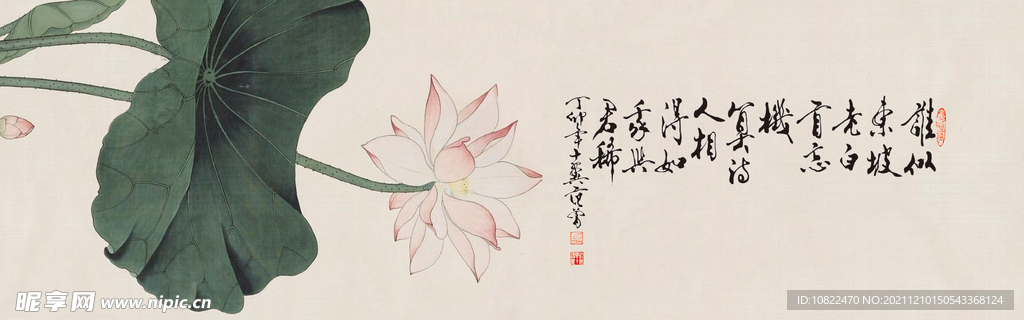 誰似
東坡
老白
首忘
機
算詩
人相
得如
我與
君稀
丁卯年十翼范曾
昵享网 www.nipic.cn
ID:10822470 NO:20211210150543368124